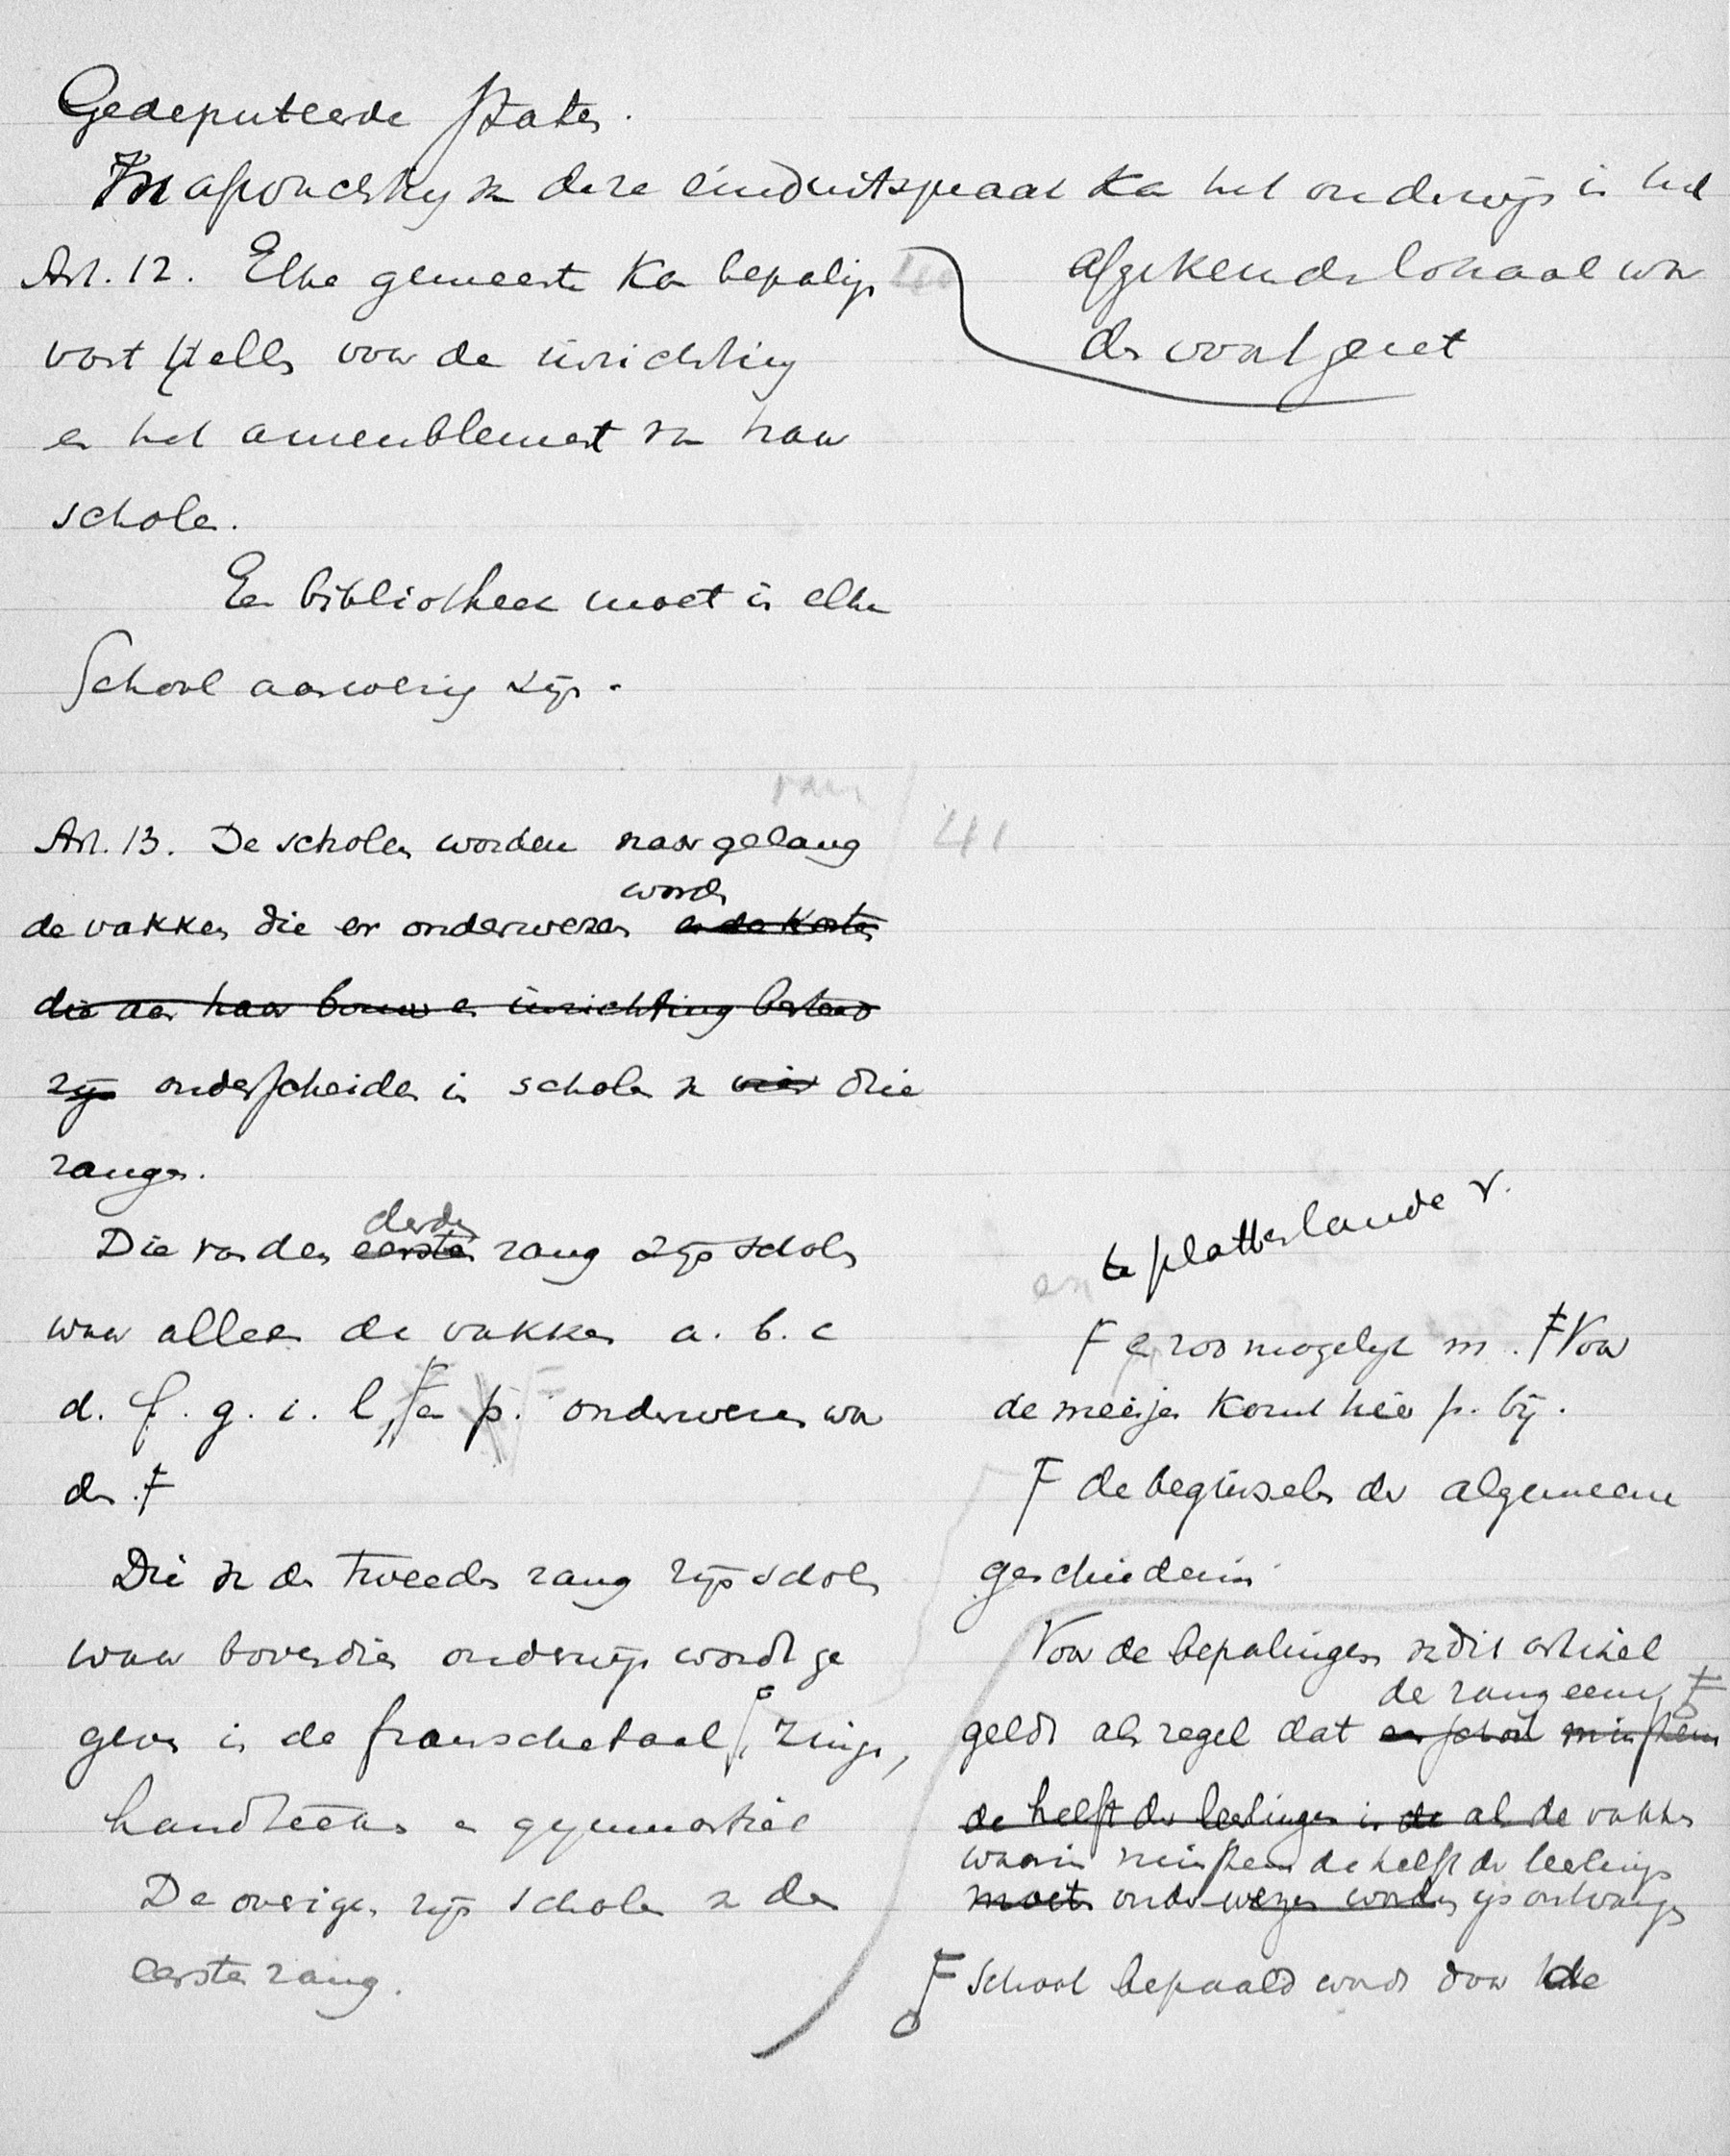 Gedeputeerde Staten.
In afwachting van deze einduitspraak kan het onderwijs in het
afgekeurde lokaal wor
den voortgezet
Art. 12. Elke gemeente kan bepalingen 40
vast stellen voor de inrichting
en het ameublement van haar
scholen.
Een bibliotheek moet in elke
School aanwezig zijn.
van
Art. 13. De scholen worden naar gelang 41
worden
de vakken die er onderwezen en de kosten
die aan haar bouw en inrichting besteed
zijn onderscheiden in scholen van vier drie
rangen.
derden
Die van den eersten rang zijn scholen
waar alleen de vakken a. b. c
d. f. g. i. l, F en p. onderwezen wor
den. F
Die van den tweeden rang zijn scholen
waar bovendien onderwijs wordt ge
geven in de fransche taal, zingen,
handteekenen en gymnastiek
De overigen zijn scholen van den
eersten rang.
en te plattelande v.
F en zoo mogelijk m. F Voor
de meisjes komt hier p. bij.
F de beginselen der algemeene
geschiedenis
Voor de bepalingen van dit artikel
de rang eener F
geldt als regel dat een school minstens
de helft der leerlingen in de al de vakken
waarin minstens de helft der leerlingen
moeten onderwezen worden wijs ontvangen
F School bepaald wordt door de